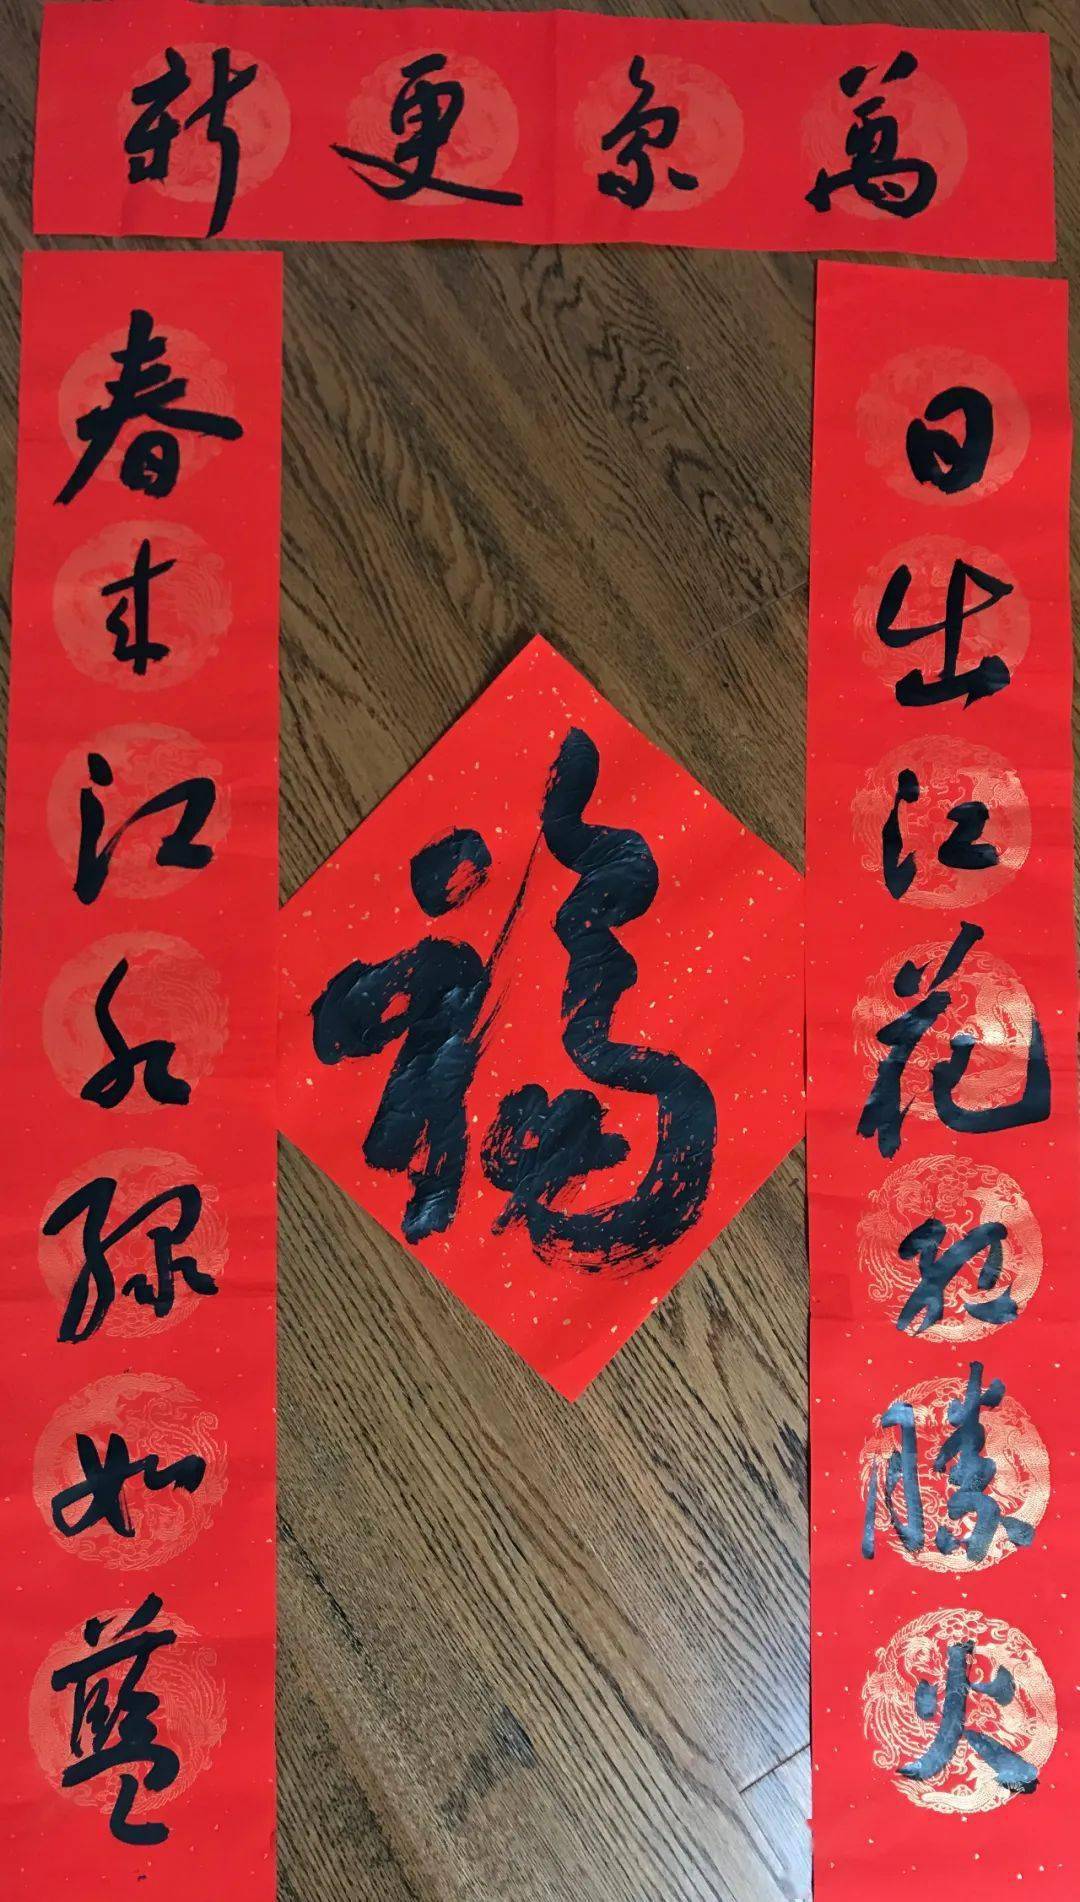 萬象更新
日出江花紅勝火
春來江水綠如藍
福